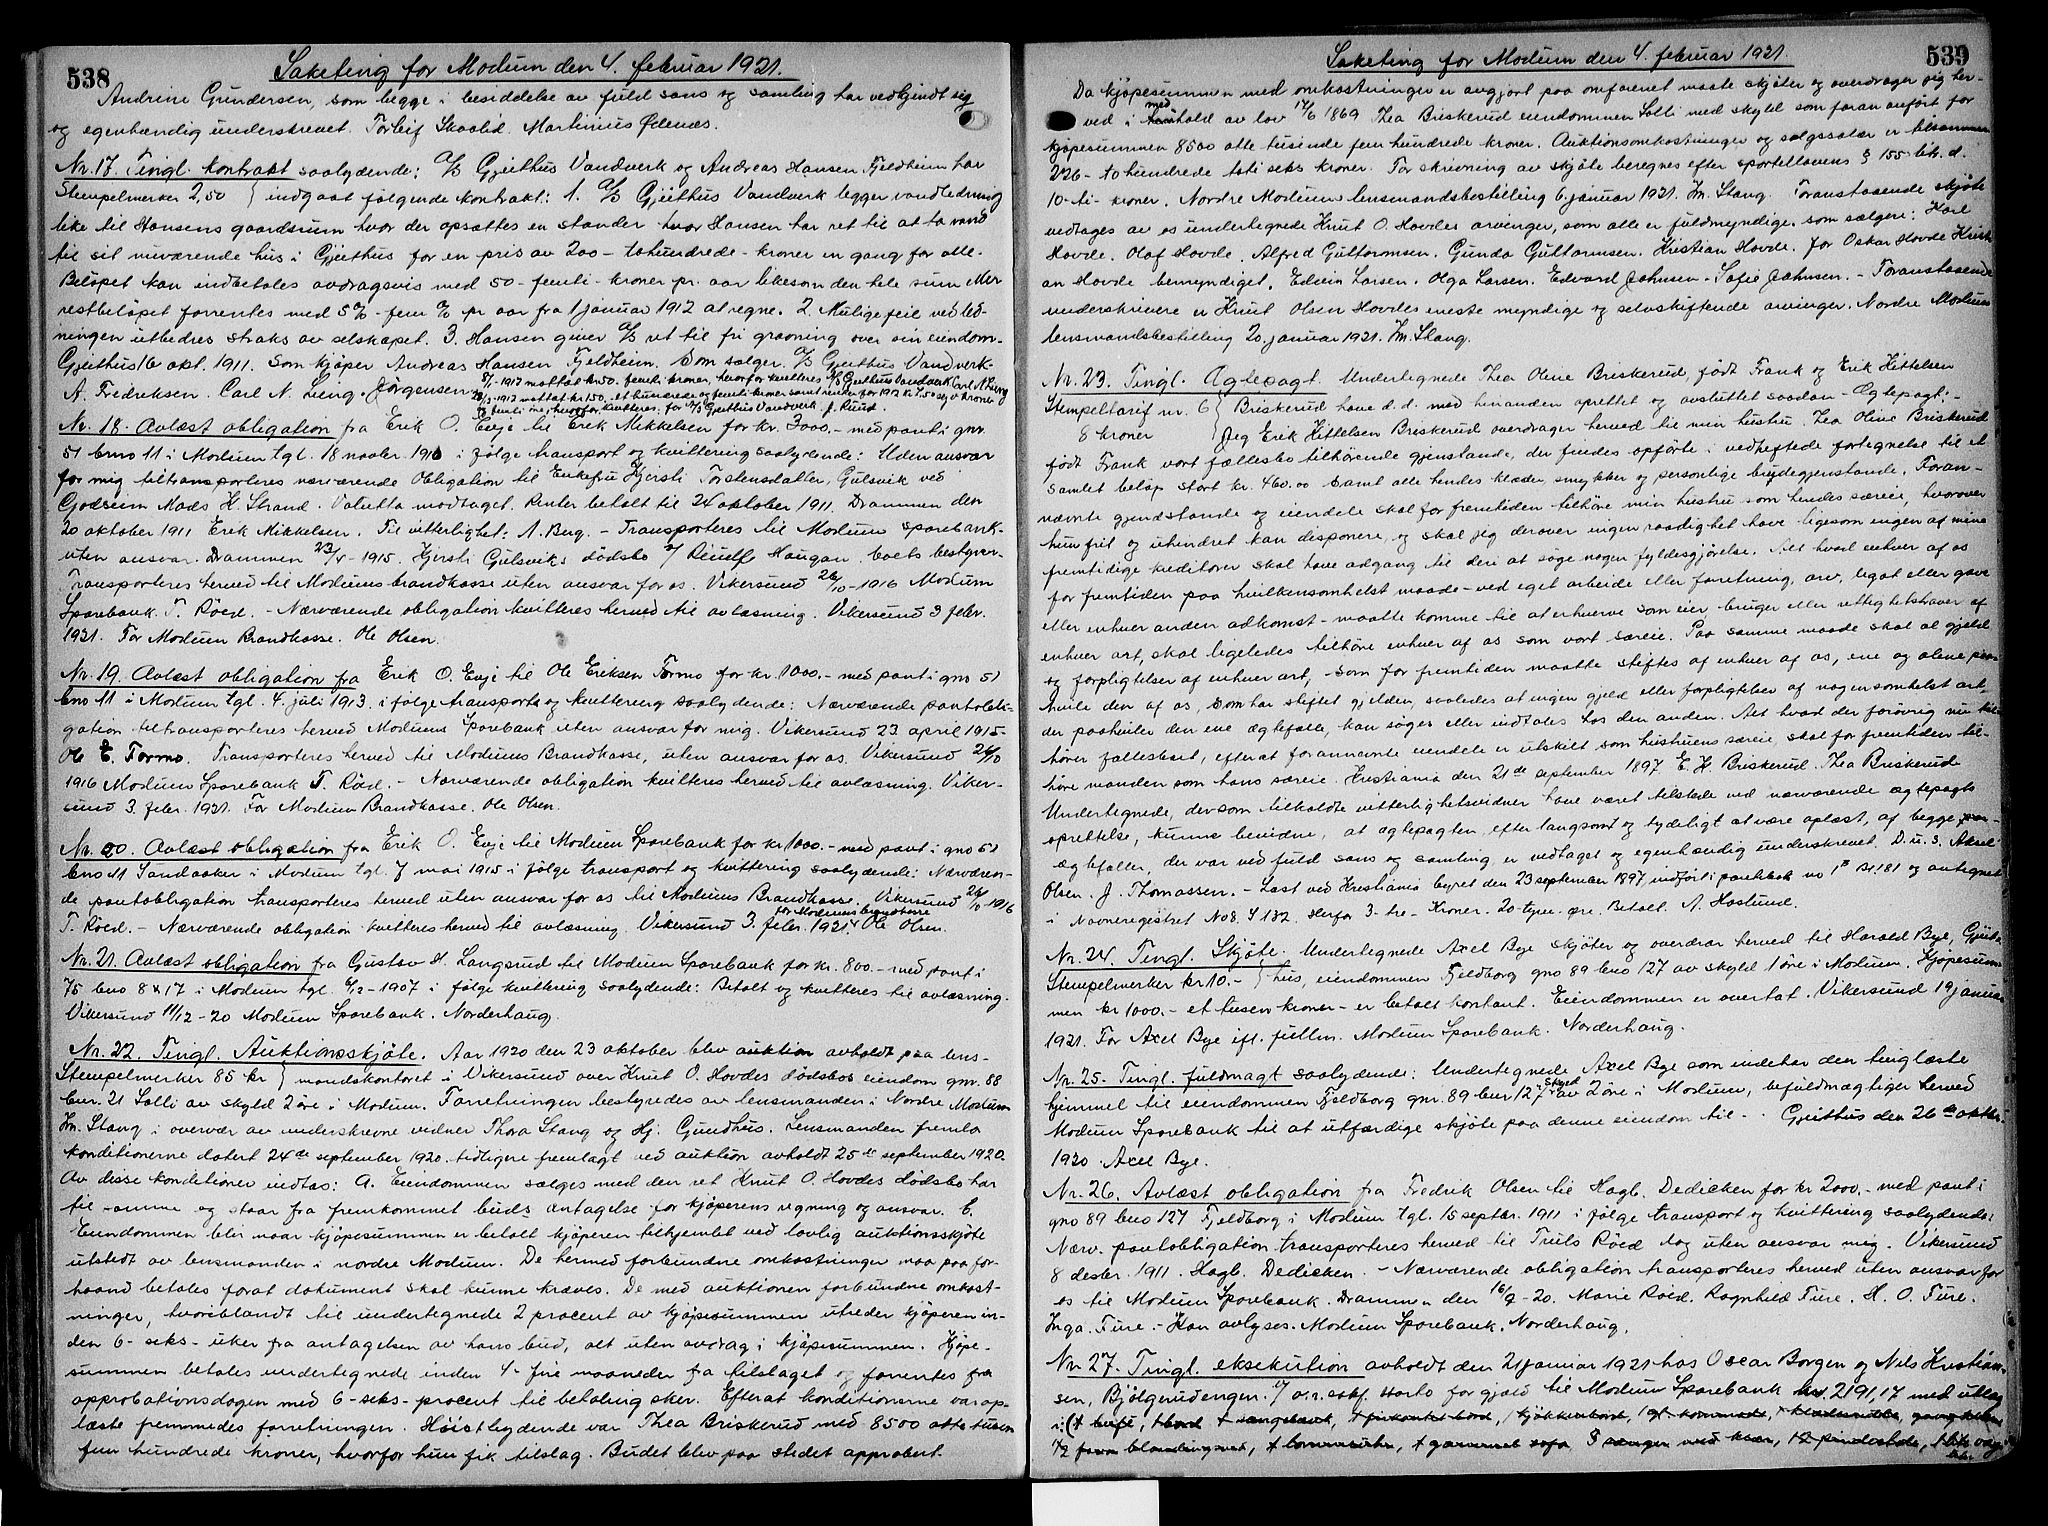 538
Saketing for Modum den 4. februar 1921.
Andrine Gundersen, som begge i besiddelse av fuld sans og samling har vedkjendt sig
og egenhændig underskrevet. Torleif Skaalid. Martinius Ødenæs.
Nr. 17. Tingl. kontrakt saalydende: A/S Gjeithus Vandverk og Andreas Hansen Fjeldheim har
Stempelmerker 2,50 } indgaat følgende kontrakt: 1. A/S Gjeithus Vandverk legger vandledning
like til Hansens gaardsrum hvor der opsættes en stander hvor Hansen har ret til at ta vand
til sit nuværende hus i Gjeithus for en pris av 200 - tohundrede - kroner en gang for alle.
Beløpet kan indbetales avdragsvis med 50 - femti - kroner pr. aar likesom den hele sum eller
restbeløpet forrentes med 5% - fem % pr aar fra 1 januar 1912 at regne. 2. Mulige feil ved led-
ningen utbedres straks av selskapet. 3. Hansen giver A/S ret til fri gravning over sin eiendom.
Gjeithus 16 okt. 1911. Som kjøper Andreas Hansen Fjeldheim. Som sælger A/S Gjeithus Vandverk.
A. Fredriksen. Carl N. Leing. Jörgensen. 5/1-1912 mottat kr 50. femti kroner, hvorfor kvitteres A/S Gjeithus Vandverk Carl N. Leing
28/3-1913 mottat kr 150. et hundrede og femti kroner samt renter for 1912 kr 7.50 syv kroner
og femti øre, hvorfor kvitteres. for A/S Gjeithus Vandverk. J. Ruud.
Nr. 18. Avlæst obligation fra Erik O. Evje til Erik Mikkelsen for kr. 3000.- med pant i gnr.
51 brno 11 i Modum tgl. 18 novbr. 1910 i følge transport og kvittering saalydende: Uden ansvar
for mig tiltransporteres nærværende Obligation til Enkefru Kjersti Torstensdatter, Gulsvik ved
Godseier Mads H. Strand. Valutta modtaget. Renter betalt til 24 oktober 1911. Drammen den
20 oktober 1911 Erik Mikkelsen. Til vitterlighet: A. Berg. - Transporteres til Modum sparebank
uten ansvar. Drammen 23/5-1915. Kjersti Gulsviks dødsbo e/ Reidulf Haugan. boets bestyrer.
Transporteres herved til Modums brandkasse uten ansvar for os. Vikersund 26/10-1916 Modum
Sparebank. T. Röed. - Nærværende obligation kvitteres herved til avlæsning. Vikersund 3 febr.
1921. For Modum Brandkasse. Ole Olsen.
Nr. 19. Avlæst obligation fra Erik O. Evje til Ole Eriksen Formo for kr. 1000.- med pant i gno 51
bno 11 i Modum tgl. 4. juli 1913. i følge transport og kvittering saalydende: Nærværende pantobli-
gation tiltransporteres herved Modums Sparebank uten ansvar for mig. Vikersund 23 april 1915.
Ole E. Formo. Transporteres herved til Modums Brandkasse, uten ansvar for os. Vikersund 26/10
1916 Modum Sparebank T. Röed. - Nærværende obligation kvitteres herved til avlæsning. Viker-
sund 3. febr. 1921. For Modum Brandkasse. Ole Olsen.
Nr. 20. Avlæst obligation fra Erik O. Evje til Modum Sparebank for kr 1000.- med pant i gno 51
bno 11 Sandaaker i Modum tgl. 7 mai 1915 i følge transport og kvittering saalydende: Nærværen-
de pantobligation transporteres herved uten ansvar for os til Modums Brandkasse. Vikersund 26/10-1916
T. Röed. - Nærværende obligation kvitteres herved til avlæsning. Vikersund 3. febr. 1921. for Modums brandkasse Ole Olsen.
Nr. 21. Avlæst obligation fra Gustav H. Langsrud til Modum Sparebank for kr. 800.- med pant i
75 bno 8 & 17 i Modum tgl. 6/2-1907 i følge kvittering saalydende: Betalt og kvitteres til avlæsning.
Vikersund 11/12-20 Modum Sparebank. Norderhaug.
Nr. 22. Tingl. Auktionsskjöte. Aar 1920 den 23 oktober blev auktion avholdt paa lens-
Stempelmerker 85 kr } mandskontoret i Vikersund over Knut O. Hovdes dödsbos eiendom gnr. 88
bnr. 21 Solli av skyld 2 øre i Modum. Forretningen bestyredes av lensmanden i Nordre Modum
Im. Stang i overvær av underskrevne vidner Thora Stang og Hj. Gundhus. Lensmanden fremla
konditionerne datert 24de september 1920. tidligere fremlagt ved auktion avholdt 25de september 1920.
Av disse konditioner indtas: A. Eiendommen sælges med den ret Knut O. Hovdes dödsbo har
til samme og staar fra fremkommet buds antagelse for kjøperens regning og ansvar. C.
Eiendommen blir naar kjøpesummen er betalt kjøperen tilhjemlet ved lovlig auktionsskjøte
utstedt av lensmanden i nordre Modum. De hermed forbundne omkostninger maa paa for-
haand betales forat dokument skal kunne kræves. De med auktionen forbundne omkost-
ninger, hvoriblandt til undertegnede 2 procent av kjøpesummen utreder kjøperen in-
den 6 - seks - uker fra antagelsen av hans bud, alt uten avdrag i kjøpesummen. Kjøpe-
summen betales undertegnede inden 4 - fire maaneder fra tilslaget og forrentes fra
approbationsdagen med 6 - seks - procent til betaling sker. Efterat konditionerne var op-
læste fremmedes forretningen. Höistbydende var Thea Briskerud med 8500 otte tusen
fem hundrede kroner, hvorfor hun fik tilslag. Budet blev paa stedet approbert.
539
Saketing for Modum den 4. februar 1921.
Da kjøpesummen med omkostninger er avgjort paa omforenet maate skjøter og overdrager jeg her-
ved i medhold av lov 17/6 1869 Thea Briskerud eiendommen Solli med skyld som foran anført for
kjøpesummen 8500 otte tusinde fem hundrede kroner. Auktionsomkostninger og salgssalær er tilsammen
226 - to hundrede toti seks kroner. For skrivning av skjøte beregnes efter sportellovens § 155 litr. d.
10 - ti - kroner. Nordre Modums lensmandsbestilling 6 januar 1921. Im. Stang. Foranstaaende skjøte
vedtages av os undertegnede Knut O. Hovdes arvinger, som alle er fuldmyndige. som sælgere: Karl
Hovde. Olaf Hovde. Alfred Guttormsen. Gunda Guttormsen. Kristian Hovde. for Oskar Hovde Kristi-
an Hovde bemyndiget. Edvin Larsen. Olga Larsen. Edvard Johnsen. Sofie Johnsen. - Foranstaaende
underskrivere er Knut Olsen Hovdes eneste myndige og selvskiftende arvinger. Nordre Modums
lensmandsbestilling 20. januar 1921. Im. Stang.
Nr. 23. Tingl. Ægtepagt. Undertegnede Thea Oline Briskerud, født Frank og Erik Kittelsen
Stempeltarif nr. 6 } Briskerud have d. d. med hinanden oprettet og avsluttet saadan - Ægtepagt: -
8 kroner } Jeg Erik Kittelsen Briskerud overdrager herved til min hustru Thea Oline Briskerud
født Frank vort fællesbo tilhørende gjenstande, der findes opførte i vedheftede fortegnelse til et
samlet beløp stort kr. 460.00 samt alle hendes klæder, smykker og personlige brugsgjenstande. Foran-
nævnte gjenstande og eiendele skal for fremtiden tilhøre min hustru som hendes særeie, hvorover
hun frit og uhindret kan disponere, og skal jeg derover ingen raadighet have ligesom ingen af mine
fremtidige kreditorer skal have adgang til deri at søge nogen fyldestgjørelse. Alt hvad enhver af os
for fremtiden paa hvilkensomhelst maade - ved eget arbeide eller forretning, arv, legat eller gave
eller enhver anden adkomst - maatte komme til at erhverve som eier bruger eller rettighetshaver af
enhver art, skal ligeledes tilhøre enhver af os som vort særeie. Paa samme maade skal al gjeld
og forpligtelser af enhver art, - som for fremtiden maatte stiftes af enhver af os, ene og alene paa-
hvile den af os, som har stiftet gjelden, saaledes at ingen gjeld eller forpligtelser af nogensomhelst art,
der paahviler den ene ægtefælle, kan søges eller indtales hos den anden. Alt hvad der forøvrig nu til-
hører fællesboet, efterat forannævnte eiendele er utskilt som hustruens særeie, skal for fremtiden til-
høre manden som hans særeie. Kristiania den 21de september 1897 E. K. Briskerud. Thea Briskerud
Undertegnede, der som tilkaldte vitterlighetsvidner have været tilstede ved nærværende ægtepagts
oprettelse, kunne bevidne, at ægtepagten, efter langsomt og tydeligt at være oplæst, af begge
ægtefæller, der var ved fuld sans og samling, er vedtaget og egenhændig underskrevet. D. u. s. Aksel
Olsen. J. Thomassen. - Læst ved Kristiania byret den 23 september 1897, indført i pantebok no 1B bl. 181 og antegnet
i Navneregistret No 8. S 132. Herfor 3 - tre - Kroner. 20 - tyve - øre. Betalt. A. Haslund.
Nr. 24. Tingl. Skjöte. Undertegnede Axel Bye skjøter og overdrar herved til Harald Bye, Gjeit-
Stempelmerker kr 10.- } hus, eiendommen Fjeldborg gno 89 bno 127 av skyld 1 øre i Modum. Kjøpesum-
men kr 1000.- et tusen kroner - er betalt kontant. Eiendommen er overtat. Vikersund 19 januar
1921. For Axel Bye ifl. fullm. Modum Sparebank. Norderhaug.
Nr. 25. Tingl. fuldmagt saalydende: Undertegnede Axel Bye som indehar den tinglæste
hjemmel til eiendommen Fjeldborg gnr. 89 bnr 127 skyld av 2 øre i Modum, befuldmægtiger herved
Modum Sparebank til at utfærdige skjøte paa denne eiendom til - . Gjeithus den 26de oktbr.
1920. Axel Bye.
Nr. 26. Avlæst obligation fra Fredrik Olsen til Hagb. Dedicken for kr 2000.- med pant i
gno 89 bno 127 Fjeldborg i Modum tgl. 15 septbr. 1911 i følge transport og kvittering saalydende:
Nærv. pantobligation transporteres herved til Truls Röed dog uten ansvar mig. Vikersund
8 desbr. 1911. Hagb. Dedicken. - Nærværende obligation transporteres herved uten ansvar for
os til Modum Sparebank. Drammen den 16/9-20. Marie Röed. Ragnhild Fure. H. O. Fure.
Inga Fure. - Kan avlyses. Modum Sparebank. Norderhaug.
Nr. 27. Tingl. eksekution avholdt den 21 januar 1921 hos Oscar Borgen og Nils Kristian-
sen, Bjölgerudengen. for gjæld til Modum Sparebank kr. 2191,17 med utlæg